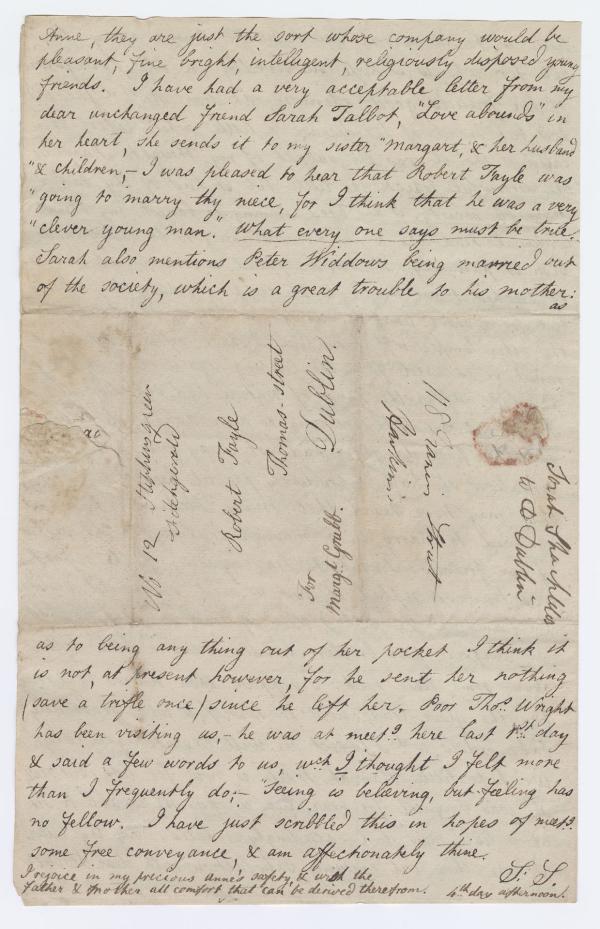 Anne, they are just the sort whose company would be
pleasant, fine bright, intelligent, religiously disposed young
friends. I have had a very acceptable letter from my
dear unchanged friend Sarah Talbot, "Love abounds" in
her heart, she sends it to my sister "Margart, & her husband
"& children,- I was pleased to hear that Robert Fayle was
"going to marry thy niece, for I think that he was a very
"clever young man". What every one says must be true.
Sarah also mentions Peter Widdows being married out
of the society, which is a great trouble to his mother:
as
No 12 Stephens green
Robert Fayle
Thomas-street
Dublin.
For
Margt. Grubb.
Street
to Dublin
as to being any thing out of her pocket I think it
is not, at present however, for he sent her nothing
(save a trifle once) since he left her. Poor Thos. Wright
has been visiting us,- he was at meetg. here last 1st. day
& said a few words to us, wch I thought I felt more
than I frequently do;- "Seeing is believing, but feeling has
no fellow. I have just scribbled this in hopes of meetg.
some free conveyance, & am affectionately thine.
S: S.
4th day afternoon.
I rejoice in my precious Anne's safety, & wish the
father & mother all comfort that can be derived therefrom.